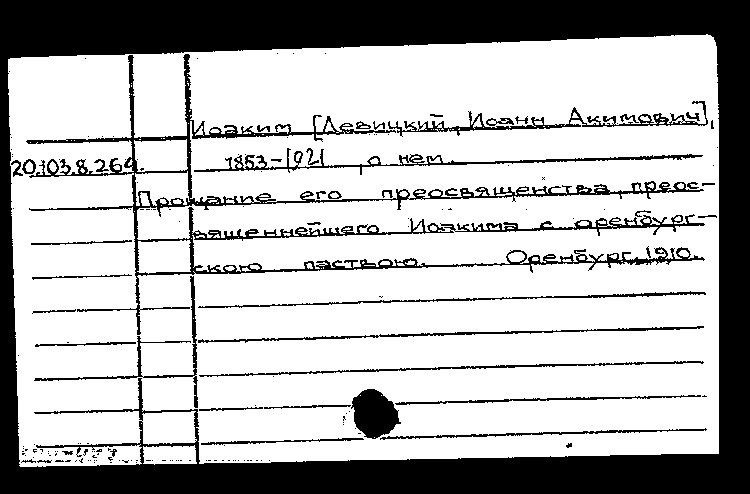 Иоаким [Левицкий, Иоанн Акимович],
20.103.8.264. 1853-1921, о нем.
Прощание его преосвященства, преос-
вященнейшего Иоакима с оренбург-
скою паствою. Оренбург, 1910.